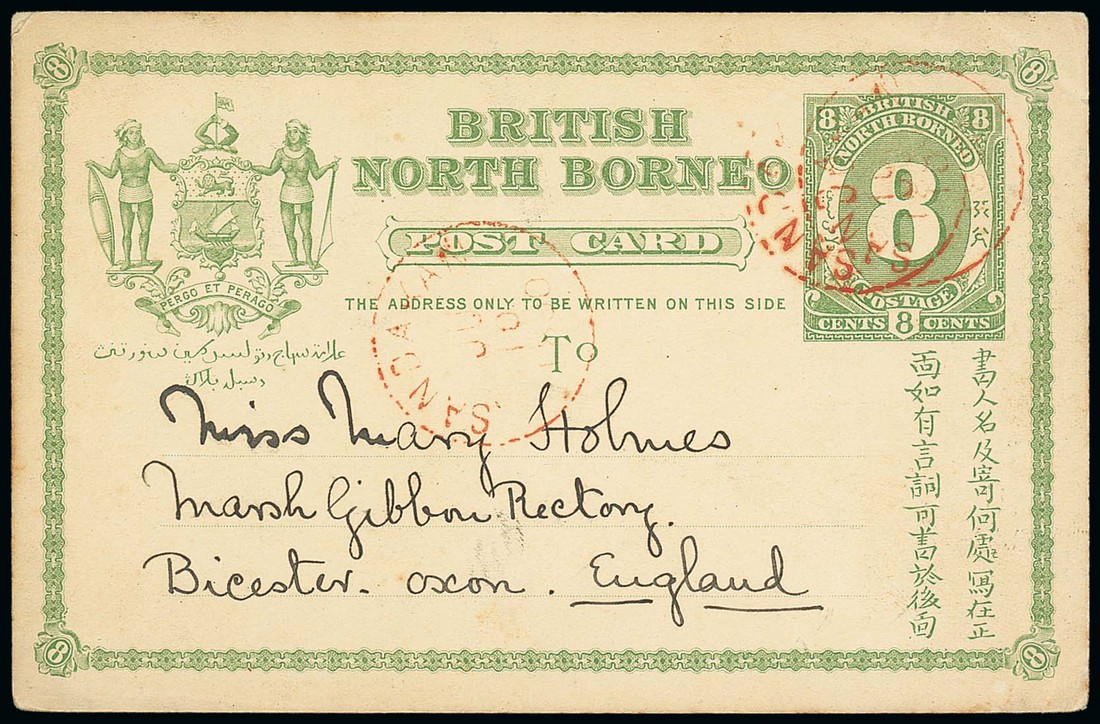 8
8
BRITISH
NORTH BORNEO
POST CARD
THE ADDRESS ONLY TO BE WRITTEN ON THIS SIDE
PERGO ET PERAGO
8 BRITISH 8
NORTH BORNEO
8
POSTAGE
CENTS 8 CENTS
SANDAKAN
To
Miss Mary Holmes
Marsh Gibbon Rectory.
Bicester. Oxon. England
書人名及寄何處寫在正
面如有言詞可書於後面
8
8